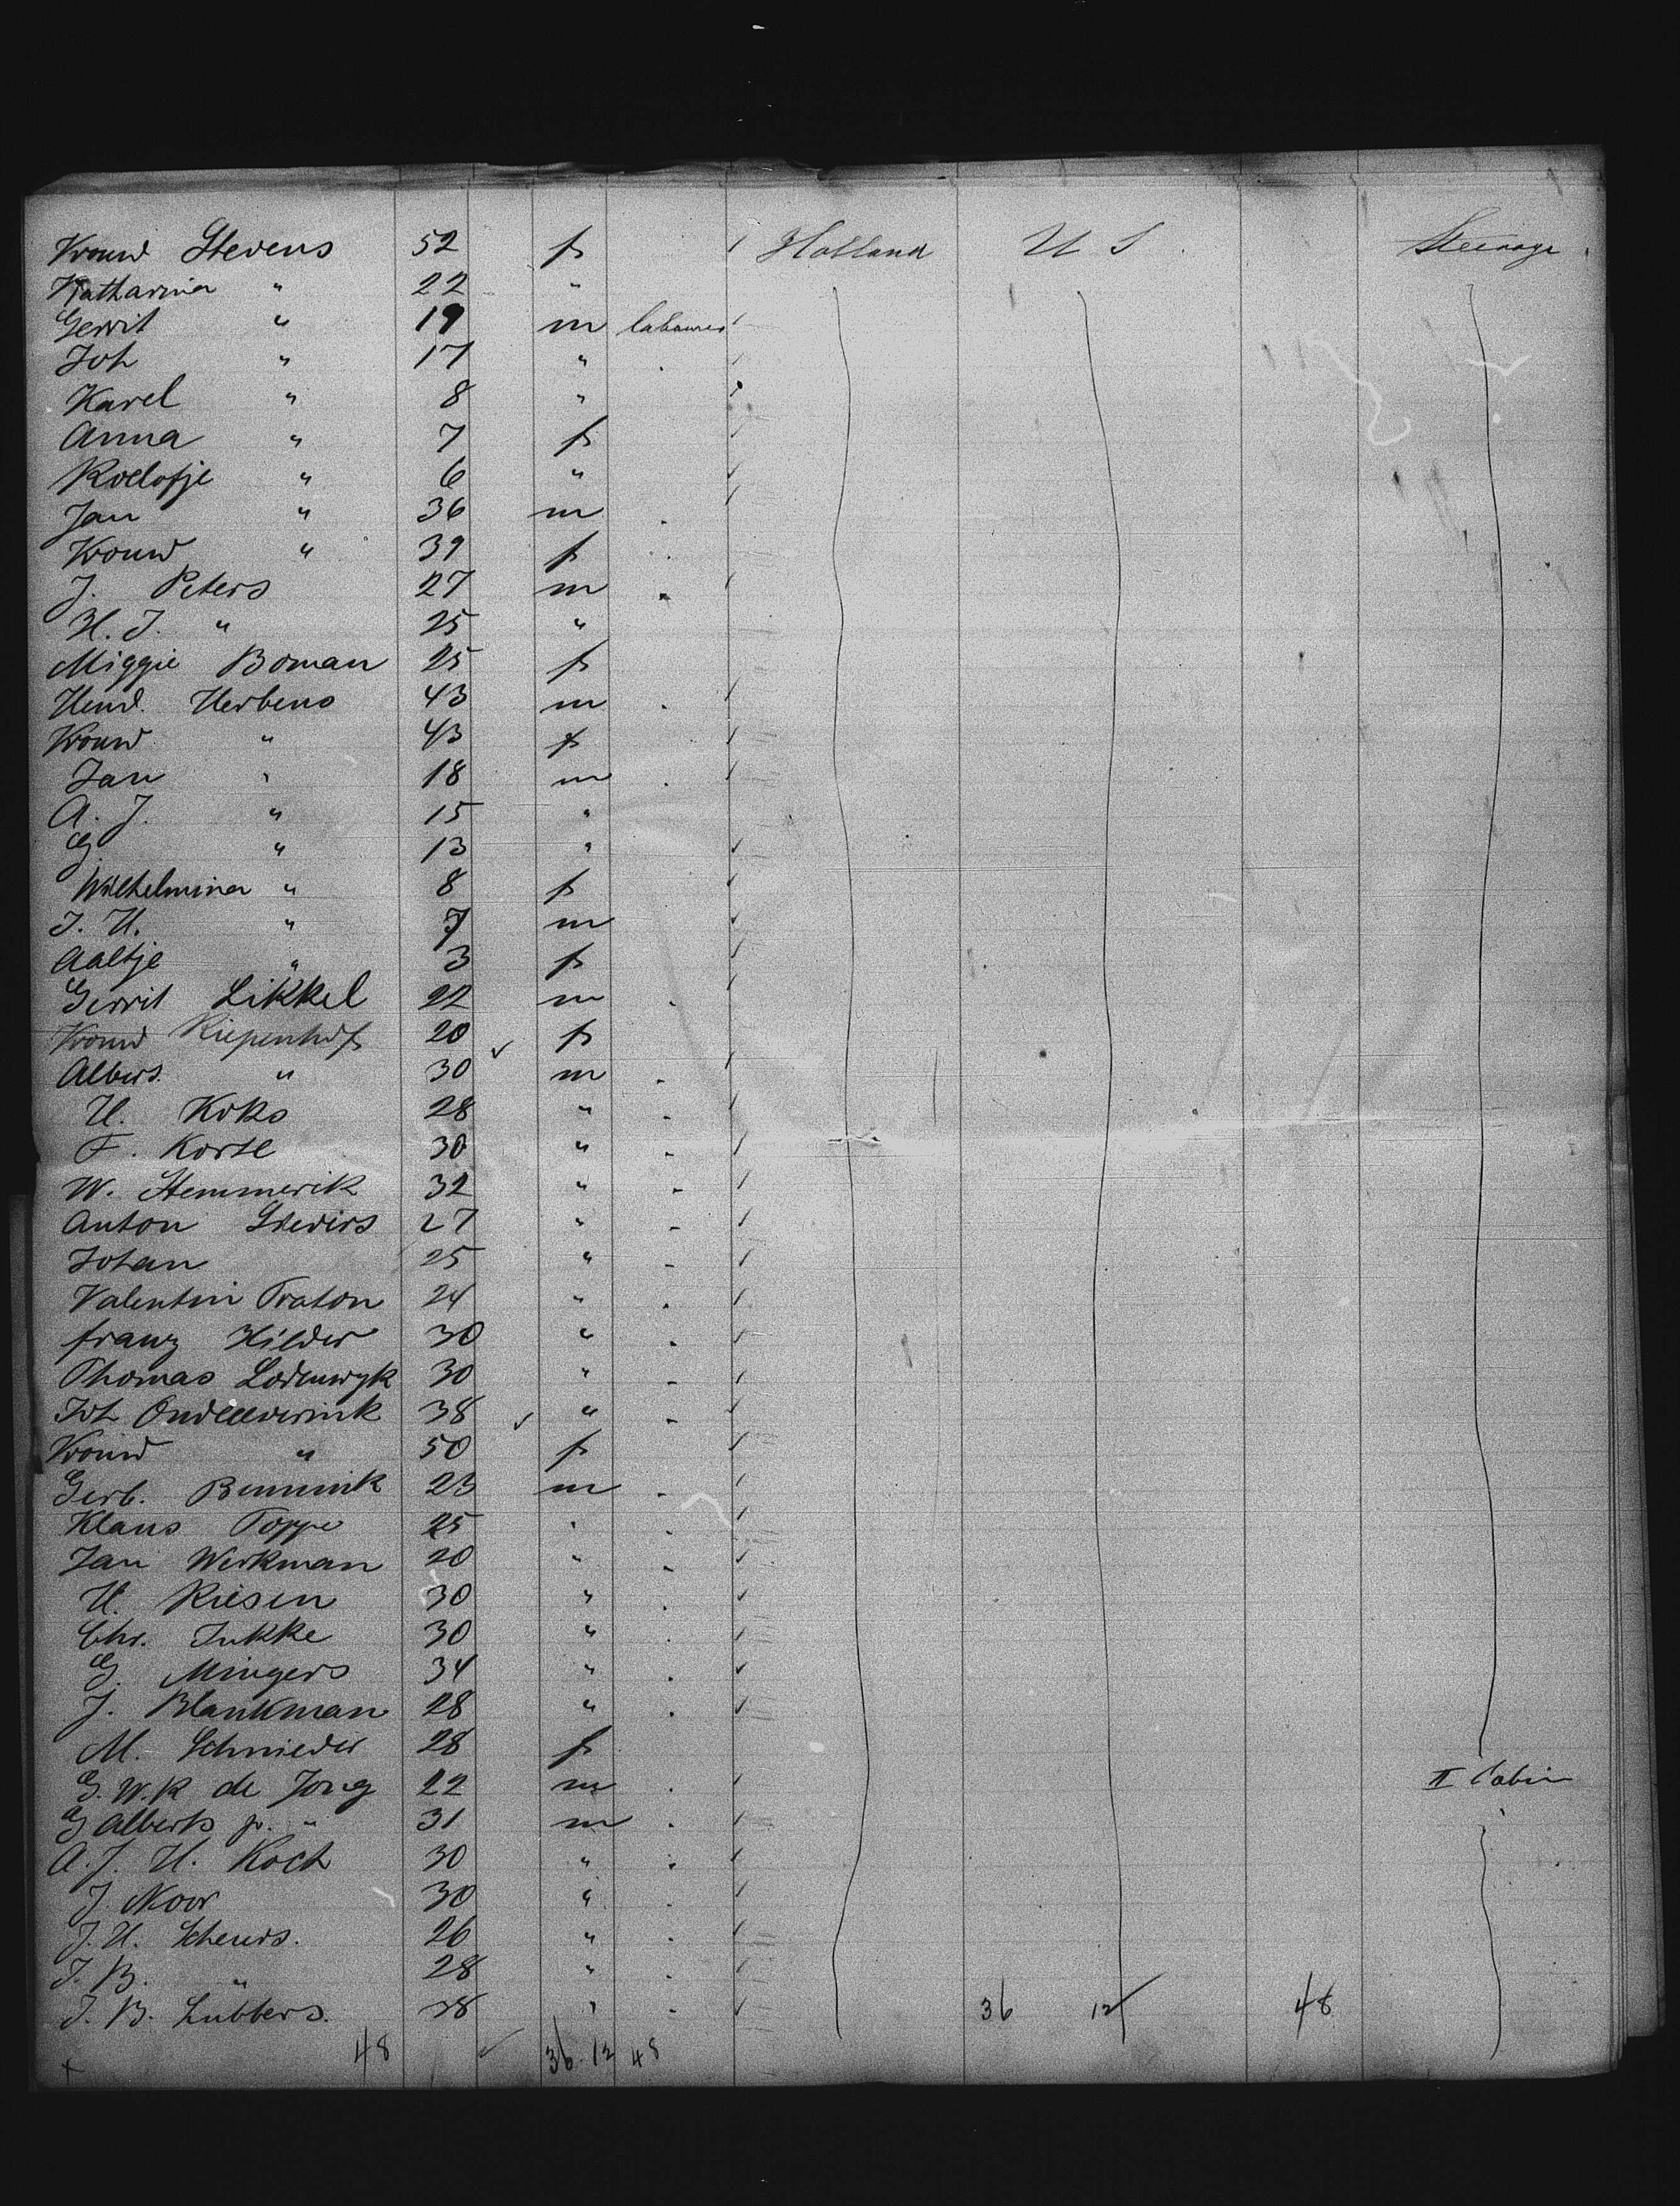 Vrouw Stevens 52 f Holland U S Steerage
Katharina " 22 "
Gerrit " 19 m labourer
Joh " 17 "
Karel " 8 "
Anna " 7 f
Roelofje " 6 "
Jan " 36 m
Vrouw " 39 f
J. Peters 27 m
H. J. " 25 "
Miggie Boman 25 f
Hend. Herbens 43 m
Vrouw " 43 f
Jan " 18 m
A. J. " 15 "
G. " 13 "
Wilhelmina " 8 f
J. H. " 7 m
Aaltje " 3 f
Gerrit Likkel 22 m
Vrouw Riepenhof 20 f
Albers " 30 m
H. Koks 28 "
F. Korte 30 "
W. Stemmerik 32 "
Anton 27 "
Johan 25 "
Valentin Traton 24 "
franz Hilder 30 "
Thomas Lodewyk 30 "
Joh 38 "
Vrouw " 50 f
Gerb. Bennink 23 m
Klaus Toppe 25 "
Jan Werkman 20 "
H. Riesen 30 "
Chr. Jukke 30 "
G. Mingers 34 "
J. Blankman 28 "
M. Schnieder 28 f
G. W. K de Jong 22 m II Cabin
G Alberts jr. " 31 m
A. J. H. Koch 30 "
J. Noor 30 "
J. H. Scheurs. 26 "
J. B. " 28 "
J. B. Lubbers. 28 " 36 12 48
48 36 12 48